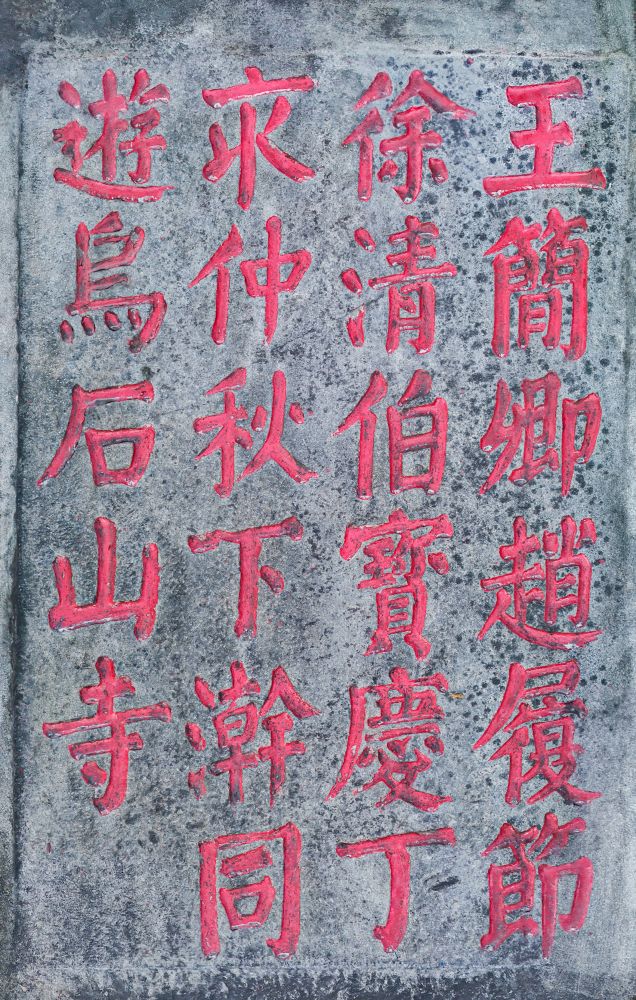 王簡卿趙履節
徐清伯寶慶丁
亥仲秋下澣同
遊烏石山寺